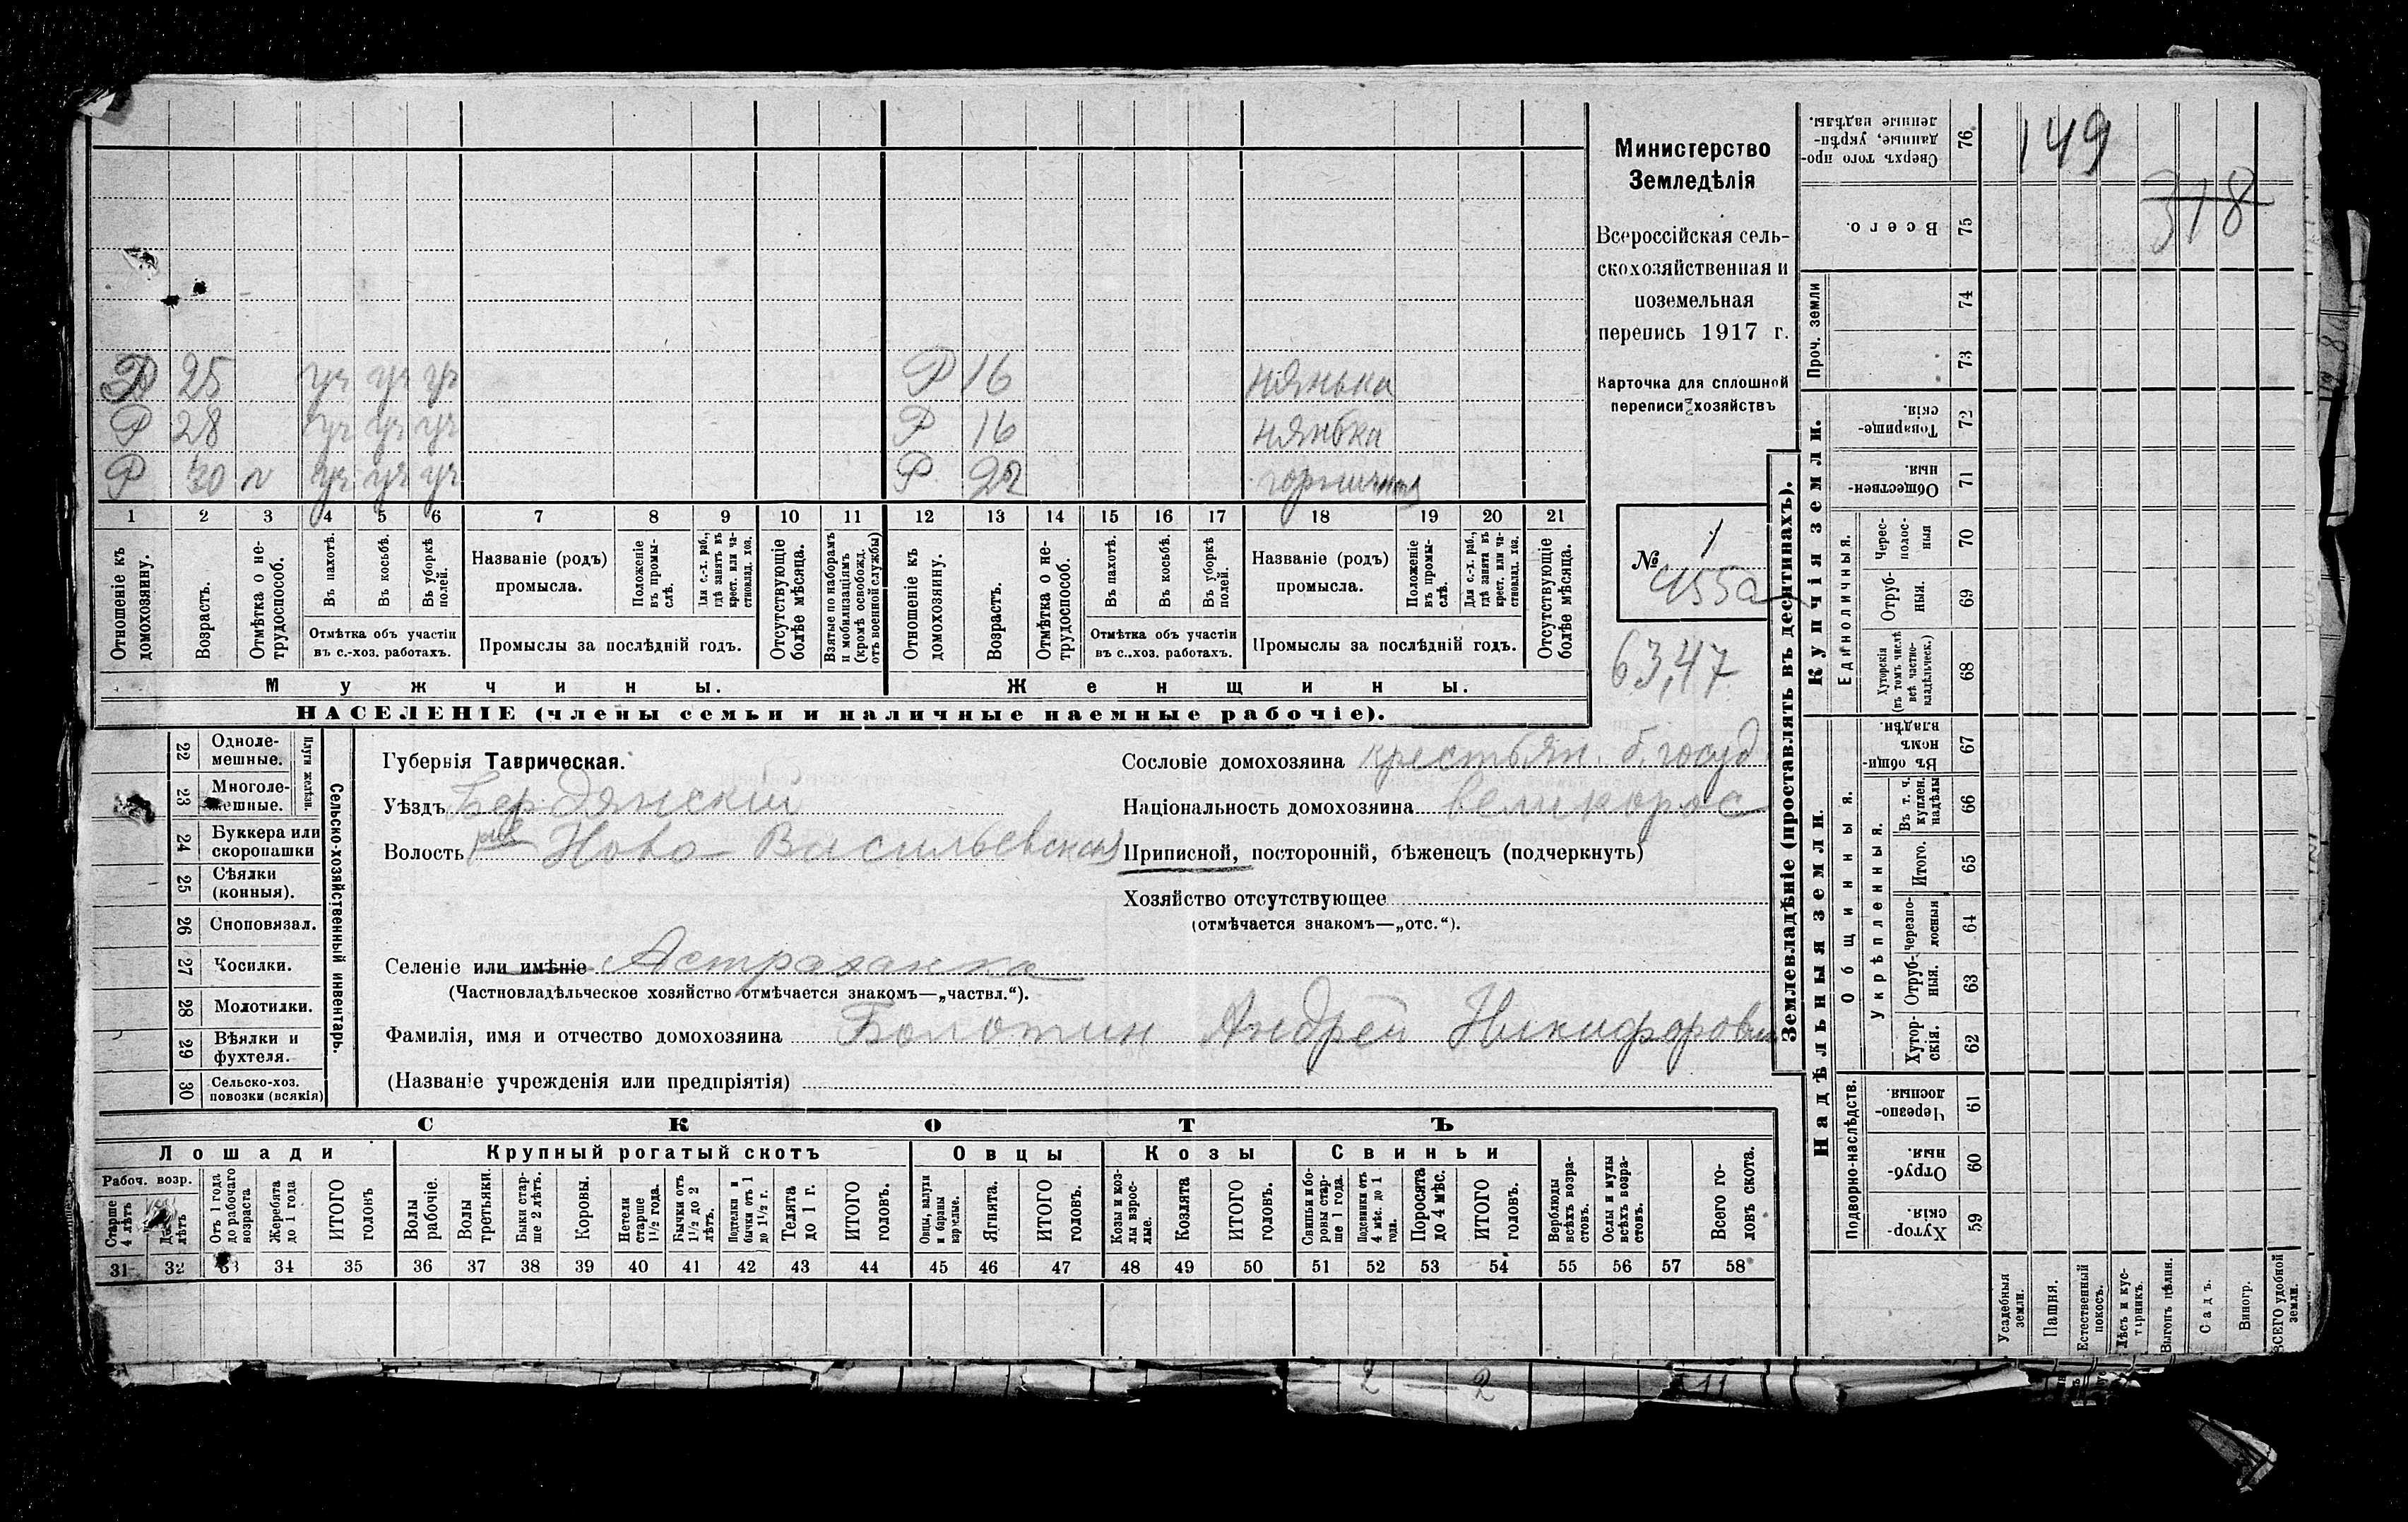 Министерство
Земледѣлія
Всероссійская сель-
скохозяйственная и
поземельная
перепись 1917 г.
Карточка для сплошной
переписи хозяйствъ
№ 1
455а
63,47
149
318
Р 25 уч уч уч Р 16 нянька
Р 28 уч уч уч Р 16 нянька
Р 30 н уч уч уч Р 22 горничная
1 2 3 4 5 6 7 8 9 10 11 12 13 14 15 16 17 18 19 20 21
Отношеніе къ домохозяину.
Возрастъ.
Отмѣтка о не-трудоспособ.
Въ пахотѣ.
Въ косьбѣ.
Въ уборкѣ полей.
Отмѣтка объ участіи
въ с.-хоз. работахъ.
Названіе (родъ)
промысла.
Положеніе въ промы-слѣ.
Для с.-х. раб., гдѣ занятъ въ крест. или ча-стновлад. хоз.
Промыслы за послѣдній годъ.
Отсутствующіе болѣе мѣсяца.
Взятые по наборамъ и мобилизаціямъ (кромѣ освобожд. отъ военной службы)
Отношеніе къ домохозяину.
Возрастъ.
Отмѣтка о не-трудоспособ.
Въ пахотѣ.
Въ косьбѣ.
Въ уборкѣ полей.
Отмѣтка объ участіи
въ с.-хоз. работахъ.
Названіе (родъ)
промысла.
Положеніе въ промы-слѣ.
Для с.-х. раб., гдѣ занята въ крест. или ча-стновлад. хоз.
Промыслы за послѣдній годъ.
Отсутствующіе болѣе мѣсяца.
Мужчины.
Женщины.
НАСЕЛЕНІЕ (члены семьи и наличные наемные рабочіе).
22 Одноле-мешные.
23 Многоле-мешные.
Плуги желѣзн.
24 Буккера или скоропашки
25 Сѣялки (конныя).
26 Сноповязал.
27 Косилки.
28 Молотилки.
29 Вѣялки и фухтеля.
30 Сельско-хоз. повозки (всякія)
Сельско-хозяйственный инвентарь.
Губернія Таврическая.
Уѣздъ Бердянскій
Волость Ново-Васильевская
Селеніе или имѣніе Астраханка
(Частновладѣльческое хозяйство отмѣчается знакомъ—„частвл.“).
Фамилія, имя и отчество домохозяина Болотин Андрей Никифорович
(Названіе учрежденія или предпріятія)
Сословіе домохозяина крестьян. б. госуд
Національность домохозяина великорос
Приписной, посторонній, бѣженецъ (подчеркнуть)
Хозяйство отсутствующее
(отмѣчается знакомъ—„отс.“).
СКОТЪ
Лошади
Крупный рогатый скотъ
Овцы
Козы
Свиньи
Рабоч. возр.
Старше 4 лѣтъ
лѣтъ
Отъ 1 года до рабочаго возраста
Жеребята до 1 года
ИТОГО головъ
Волы рабочіе.
Волы третьяки.
Быки стар-ше 2 лѣтъ.
Коровы.
Нетели старше 1½ года.
Бычки отъ 1½ до 2 лѣтъ.
Подтелки и бычки отъ 1 до 1½ г.
Телята до 1 г.
ИТОГО головъ.
Овцы, валухи и бараны взрослые.
Ягнята.
ИТОГО головъ.
Козы и коз-лы взрос-лые.
Козлята
ИТОГО головъ.
Свиньи и бо-ровы стар-ше 1 года.
Подсвинки отъ 4 мѣс. до 1 года.
Поросята до 4 мѣс.
ИТОГО головъ.
Верблюды всѣхъ возра-стовъ.
Ослы и мулы всѣхъ возра-стовъ.
Всего го-ловъ скота.
31 32 33 34 35 36 37 38 39 40 41 42 43 44 45 46 47 48 49 50 51 52 53 54 55 56 57 58
Землевладѣніе (проставлять въ десятинахъ).
Купчія земли.
Надѣльныя земли.
Сверхъ того про-данные, укрѣп-ленные надѣлы. 76
Всего. 75
Проч. земли 74
73
Товарище-скія. 72
Обществен-ныя. 71
Единоличныя.
Черес-полос-ныя 70
Отруб-ныя. 69
Хуторскія (въ томъ числѣ всѣ частно-владѣльческ.) 68
Общинныя.
Въ общи-номъ владѣн. 67
Укрѣпленныя.
Въ т. ч. куплен. надѣлы 66
Итого. 65
Черезпо-лосныя 64
Отруб-ныя. 63
Хутор-скія. 62
Подворно-наслѣдств.
Черезпо-лосныя. 61
Отруб-ныя. 60
Хутор-скія. 59
Усадебныя земли.
Пашня.
Естественный покосъ.
Лѣсъ и кус-тарникъ.
Выгонъ цѣлин.
Садъ.
Виногр.
ВСЕГО удобной земли.
2 — 2 11